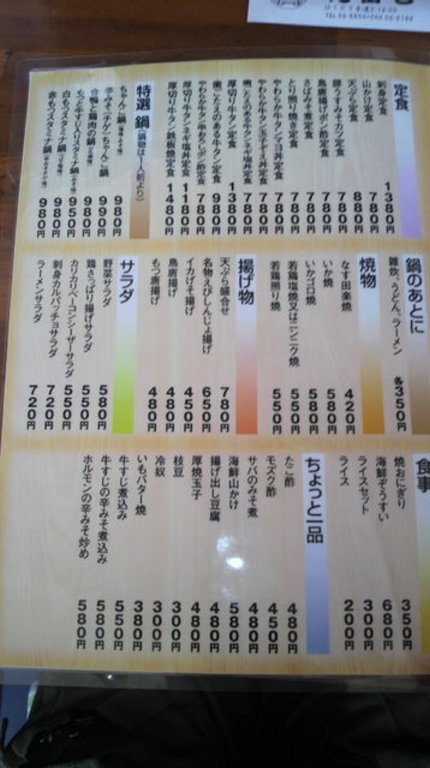 定食
刺身定食 1380円
山かけ定食 780円
天ぷら定食 880円
豚うすみそカツ定食 780円
鳥唐揚げポン酢定食 780円
さばみそ煮定食 780円
とり照り焼き定食 780円
やわらか牛タンマヨ丼定食 780円
厚切り牛タン定食 1380円
歯ごたえのある牛タン定食 980円
厚切り牛タンネギ塩丼定食 1180円
厚切り牛タン鉄板焼定食 1480円
特選 鍋(鍋物は二人前より)
ちゃんこ鍋 980円
辛みそ(チゲ)ちゃんこ鍋 990円
合鴨と鶏肉の鍋 980円
もつと牛すじ入りスタミナ鍋 950円
白もつスタミナ鍋 980円
赤もつスタミナ鍋 980円
鍋のあとに
雑炊、うどん、ラーメン 各350円
焼物
なす田楽焼 420円
いか焼 580円
いかゴロ焼 580円
若鶏塩焼又はニンニク焼 550円
若鶏照り焼 550円
揚げ物
天ぷら盛合せ 780円
名物えびしんじょ揚げ 650円
イカげそ揚げ 450円
鳥唐揚げ 480円
もつ唐揚げ 480円
サラダ
野菜サラダ 580円
鶏さっぱり揚げサラダ 550円
カリカリベーコンシーザーサラダ 550円
刺身カルパッチョサラダ 720円
ラーメンサラダ 720円
食事
焼おにぎり 350円
海鮮ぞうすい 680円
ライスセット 300円
ライス 200円
ちょっと一品
たこ酢 480円
モズク酢 450円
サバのみそ煮 480円
海鮮山かけ 580円
揚げ出し豆腐 480円
厚焼玉子 480円
枝豆 300円
冷奴 300円
いもバター焼 380円
牛すじ煮込み 550円
牛すじの辛みそ煮込み 580円
ホルモンの辛みそ炒め 580円